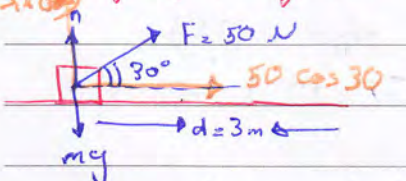 n
F = 50 N
30°
50 cos 30
d = 3 m
mg